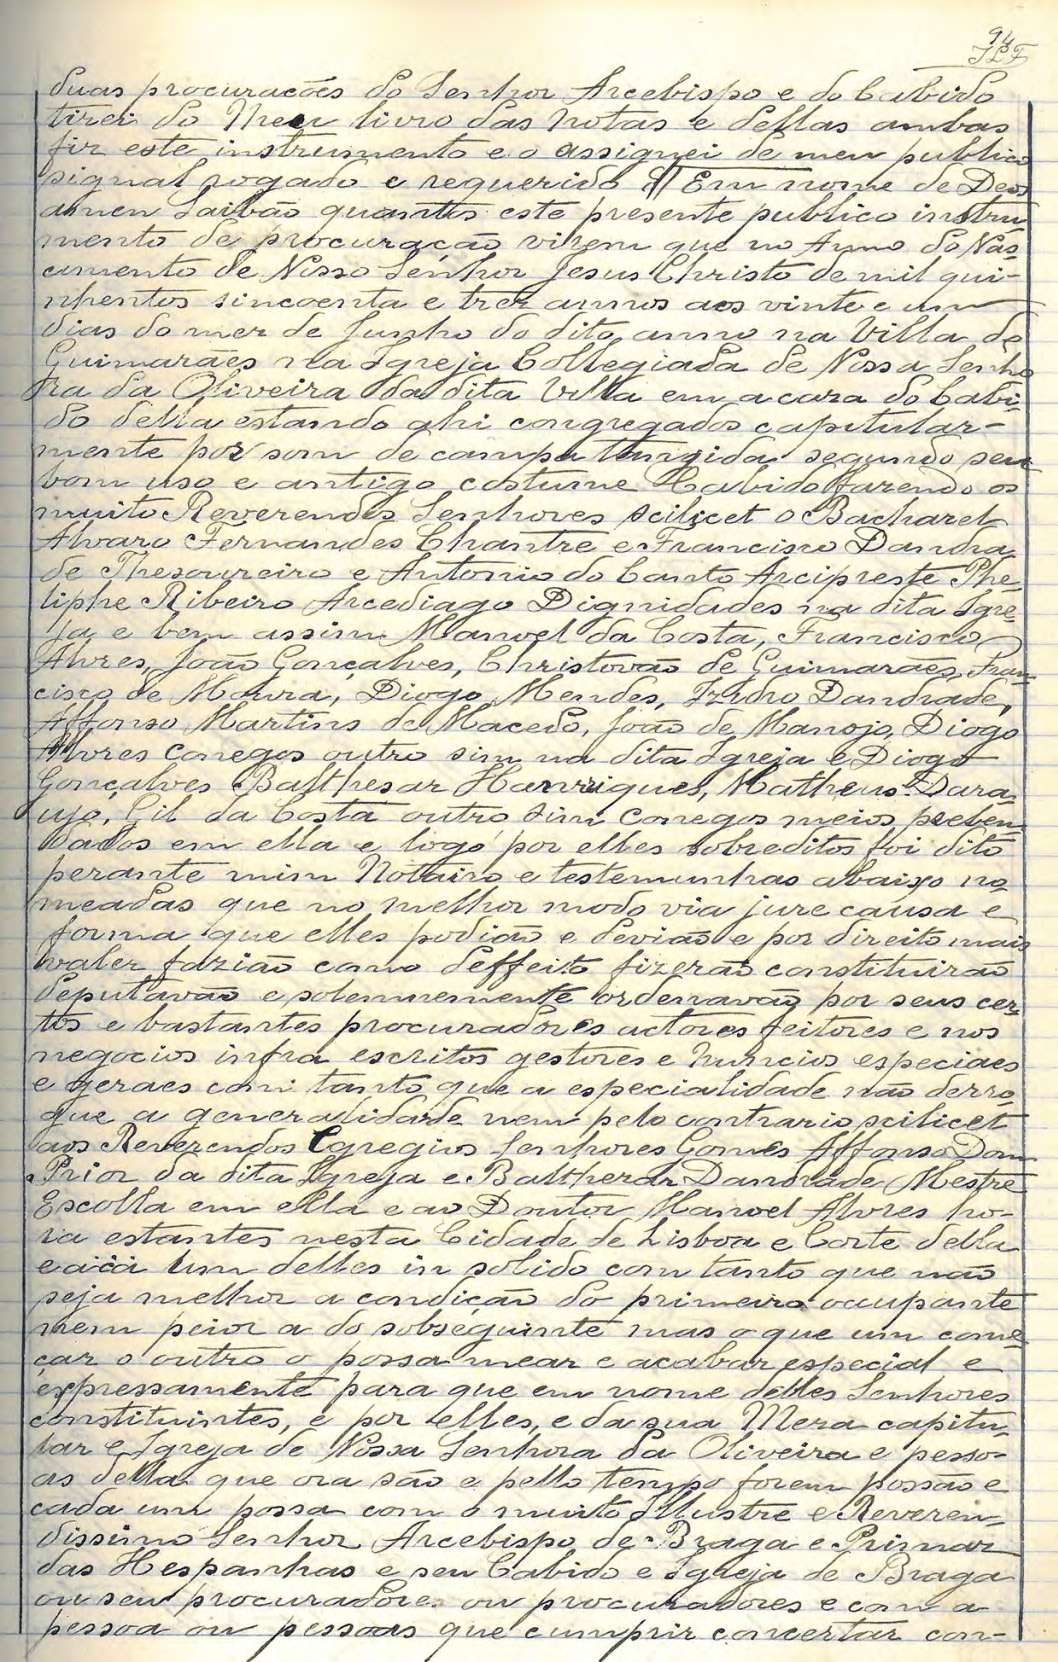 94
duas procuracões do Senhor Arcebispo e do Cabido
tirei do Meu livro das Notas e dellas ambas
fiz este instrumento e o assignei de meu publico
signal rogado e requerido Em nome de Deos
amen Saibão quantos este presente publico instru-
mento de procuração virem que no Anno do Nas-
cimento de Nosso Senhor Jesus Christo de mil qui-
nhentos sincoenta e trez annos aos vinte e um
dias do mez de Junho do dito anno na Villa de
Guimarães na Igreja Collegiada de Nossa Senho
ra da Oliveira da dita Villa em a caza do Cabi-
do della estando ahi congregados capitular-
mente por som de campa tangida segundo seu
bom uso e antigo costume Cabido fazendo os
muito Reverendos Senhores scilicet o Bacharel
Alvaro Fernandes Chantre e Francisco Dandra
de Thesoureiro e Antonio do Canto Arcipreste Phe-
liphe Ribeiro Arcediago Dignidades na dita Igre-
ja e bem assim Manoel da Costa, Francisco
Alvres, João Gonçalves, Christovão de Guimarães, Fran-
cisco de Moura, Diogo Mendes, Izidro Dandrade,
Affonso Martins de Macedo, João de Manojo, Diogo
Alvres conegos outro sim na dita Igreja e Diogo
Gonçalves Balthesar Hanrriques, Matheus Dara-
ujo, Gil da Costa outro sim conegos meios preben-
dados em ella e logo por elles sobreditos foi dito
perante mim Notairo e testemunhas abaixo no-
meadas que no melhor modo via jure causa e
forma que elles podião e devião e por direito mais
valer fazião como deffeito fizerão constituirão
deputavão e solemnemente ordenavão por seus cer-
tos e bastantes procuradores actores feitores e nos
negocios infra escritos gestores e nuncios especiaes
e geraes com tanto que a especialidade não derro
gue a generalidade nem pelo contrario scilicet
aos Reverendos Egregios Senhores Gomes Affonso Dom
Prior da dita Igreja e Balthezar Dandrade Mestre
Escolla em ella e ao Doutor Manoel Alvres ho-
ra estantes nesta Cidade de Lisboa e Corte della
e a cada um delles in solido com tanto que não
seja melhor a condição do primeiro occupante
nem peior a do sobseguinte mas o que um come-
çar o outro o possa mear e acabar especial e
expressamente para que em nome delles Senhores
constituintes, e por elles, e da sua Meza capitu-
lar e Igreja de Nossa Senhora da Oliveira e pesso-
as della que ora são e pello tempo forem possão e
cada um possa com o muito Illustre e Reveren-
dissimo Senhor Arcebispo de Braga e Primaz
das Hespanhas e seu Cabido e Igreja de Braga
ou seu procurador ou procuradores e com a
pessoa ou pessoas que cumprir concertar con-